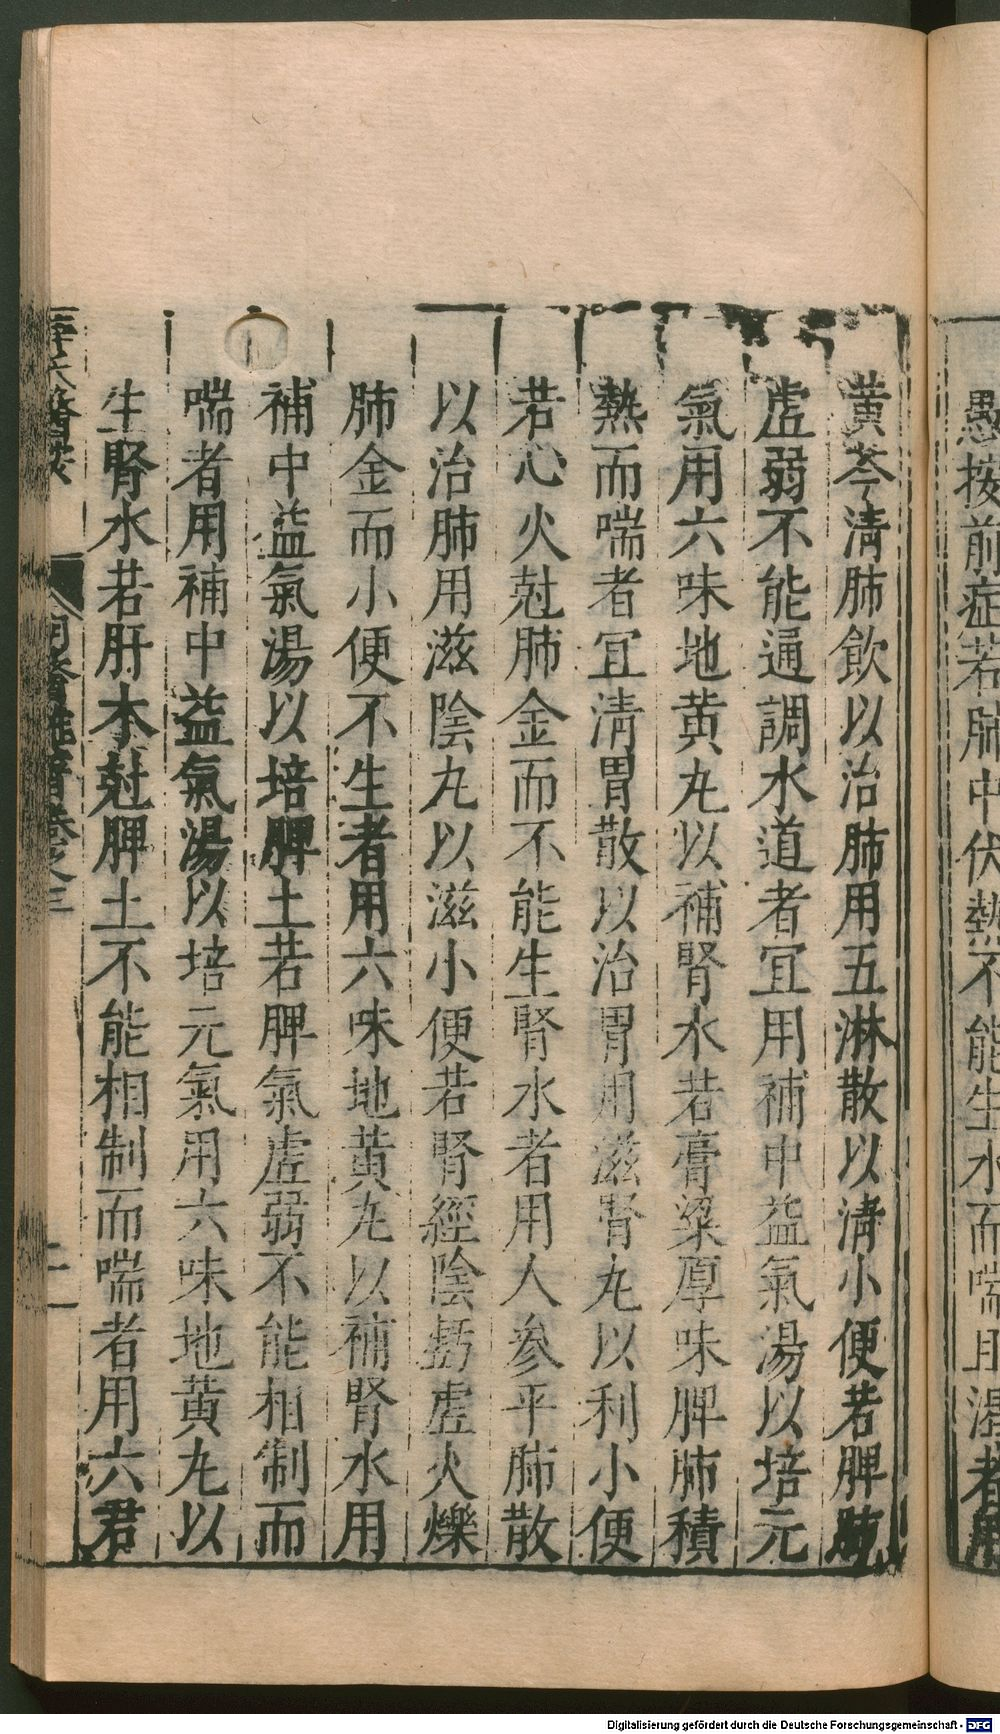 愚按前症若肺中伏熱不能生水而喘且渴者用
黃芩淸肺飲以治肺用五淋散以淸小便若脾肺
虛弱不能通調水道者宜用補中益氣湯以培元
氣用六味地黃丸以補腎水若膏粱厚味脾肺積
熱而喘者宜淸胃散以治胃用滋腎丸以利小便
若心火尅肺金而不能生腎水者用人參平肺散
以治肺用滋陰丸以滋小便若腎經陰虧虛火爍
肺金而小便不生者用六味地黃丸以補腎水用
補中益氣湯以培脾土若脾氣虛弱不能相制而
喘者用補中益氣湯以培元氣用六味地黃丸以
生腎水若肝木尅脾土不能相制而喘者用六君
薛氏醫按
明醫雜著卷之三
二
Digitalisierung gefördert durch die Deutsche Forschungsgemeinschaft - DFG